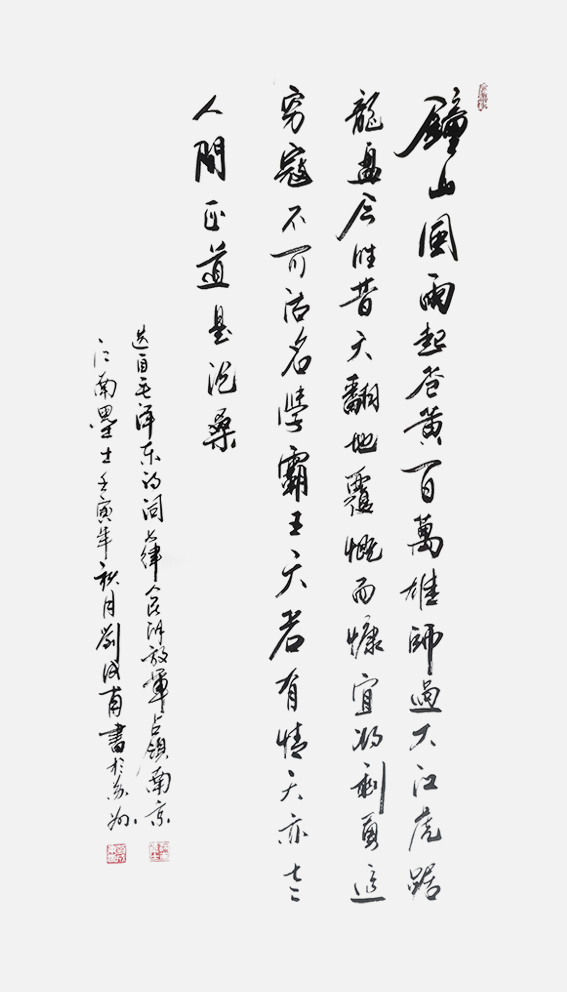 鐘山風雨起苍黄百萬雄師過大江虎踞
龍盘今胜昔天翻地覆慨而慷宜将剩勇追
穷寇不可沽名學霸王天若有情天亦老
人間正道是沧桑
选自毛泽东诗词七律人民解放軍占領南京
江南墨士壬寅年秋月劉成甫書於苏州